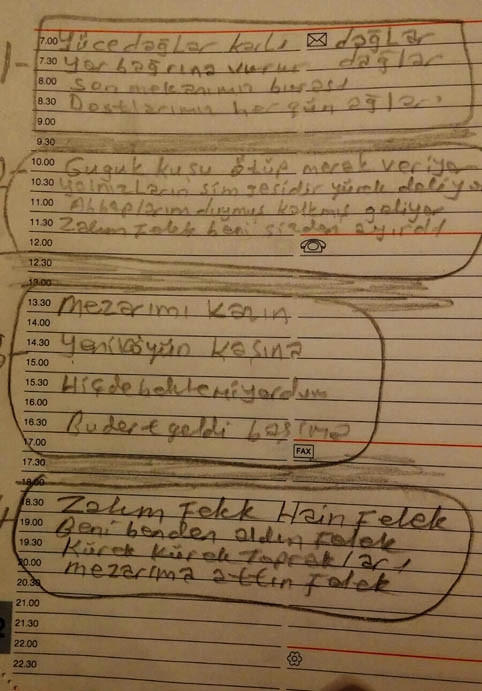 1-
7.00 Yüce dağlar karlı dağlar
7.30 Yar bağrına vurur dağlar
8.00 Son mekanımın burası
8.30 Dostlarımın her gün ağlar
9.00
9.30
10.00 Guguk kuşu ötüp merak veriyor
10.30 Yalnızların simgesidir yürek deliyo
11.00 Ahbaplarım duymuş kalkmış geliyor
11.30 Zalım Felek beni sizden ayırdı
12.00
12.30
13.00
13.30 Mezarımı kazın
14.00
14.30 Yeniköyün kaşına
15.00
15.30 Hiçde beklemiyordum
16.00
16.30 Budert geldi başıma
17.00 FAX
17.30
18.00
18.30 Zalım Felek Hain Felek
19.00 Beni benden aldın Felek
19.30 Kürek kürek toprakları
20.00 mezarıma attın Felek
20.30
21.00
21.30
22.00
22.30